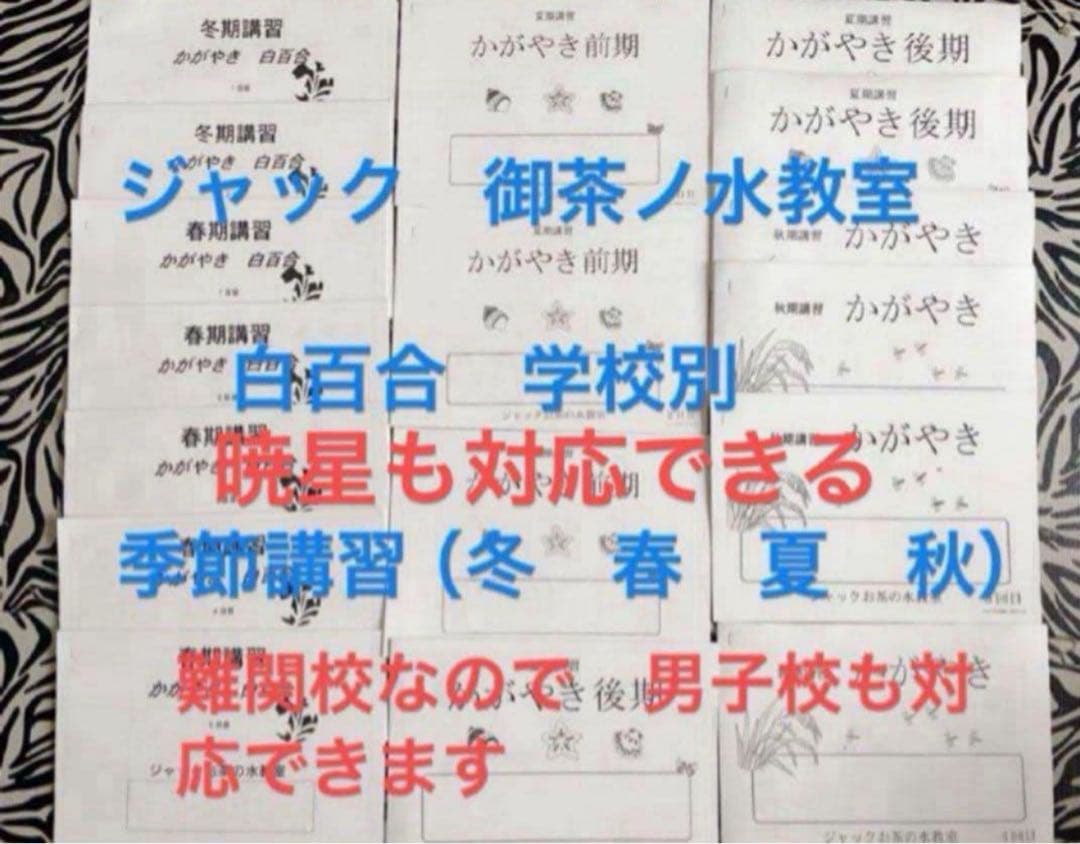 冬期講習
かがやき 白百合
冬期講習
かがやき 白百合
春期講習
かがやき 白百合
春期講習
かがやき 白百
春期講習
かがやき
春期講習
夏期講習
かがやき前期
夏期講習
かがやき前期
かがやき後期
夏期講習
かがやき後期
夏期講習
かがやき後期
秋期講習 かがやき
秋期講習 かがやき
かがやき
ジャックお茶の水教室
がやき
ジャックお茶の水教室
ジャック 御茶ノ水教室
白百合 学校別
暁星も対応できる
季節講習(冬 春 夏 秋)
難関校なので 男子校も対
応できます